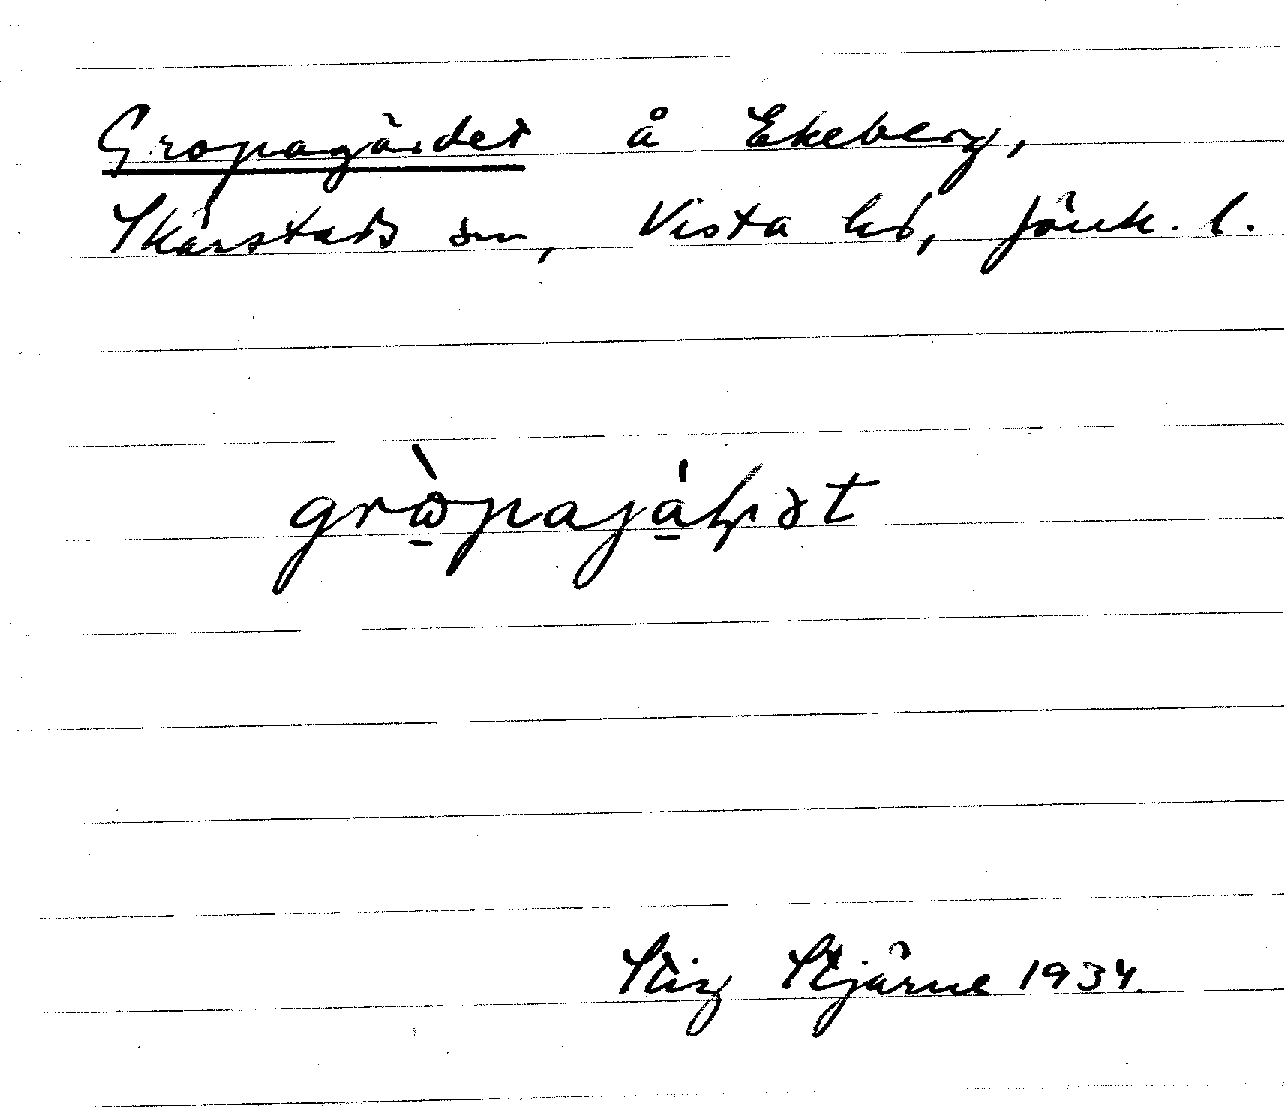 Gropagärdet å Ekeberg,
Skärstads sn, Vista hd, Jönk. l.
grὼpajáḷḍət
Stig Stjärne 1934.